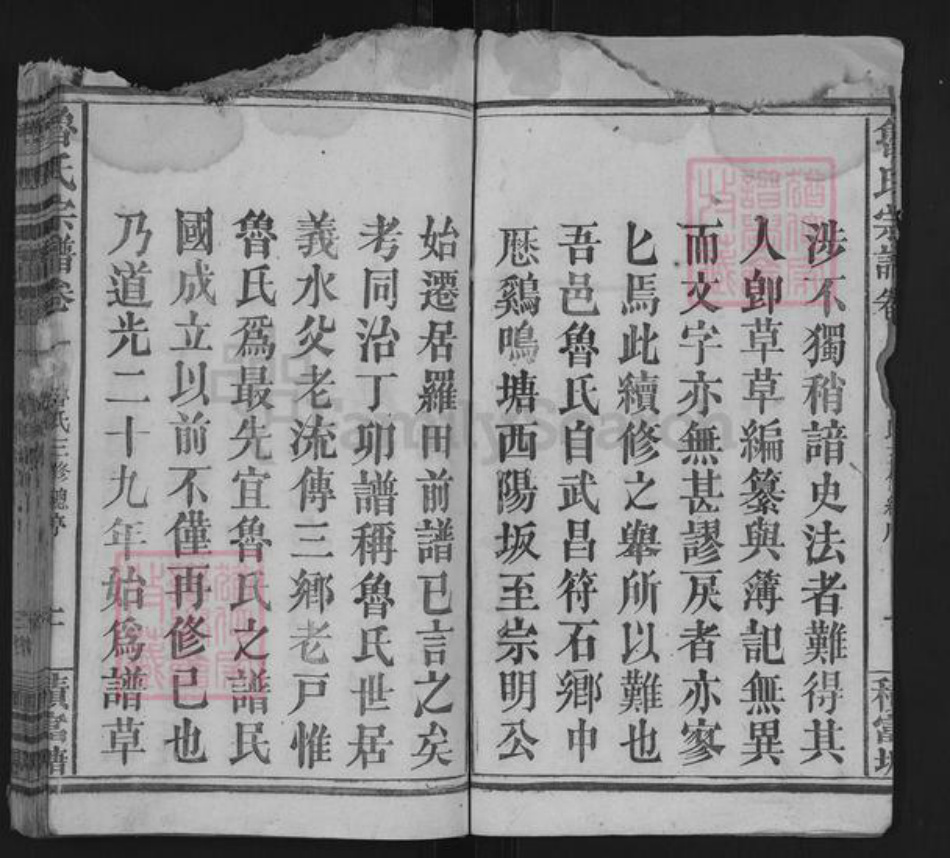 涉不獨稍諳史法者難得其
人卽草草編纂與薄記無異
而文字亦無甚謬戾者亦寥
匕焉此續修之舉所以難也
吾邑魯氏自武昌符石鄉中
歷鷄鳴塘西陽坂至宗明公
始遷居羅田前譜已言之矣
考同治丁卯譜稱魯氏世居
義水父老流傳三鄉老戸惟
魯氏爲最先宜魯氏之譜民
國成立以前不僅再修已也
乃道光二十九年始爲譜草
魯氏宗譜卷一
魯氏三修總序
FamilySearch